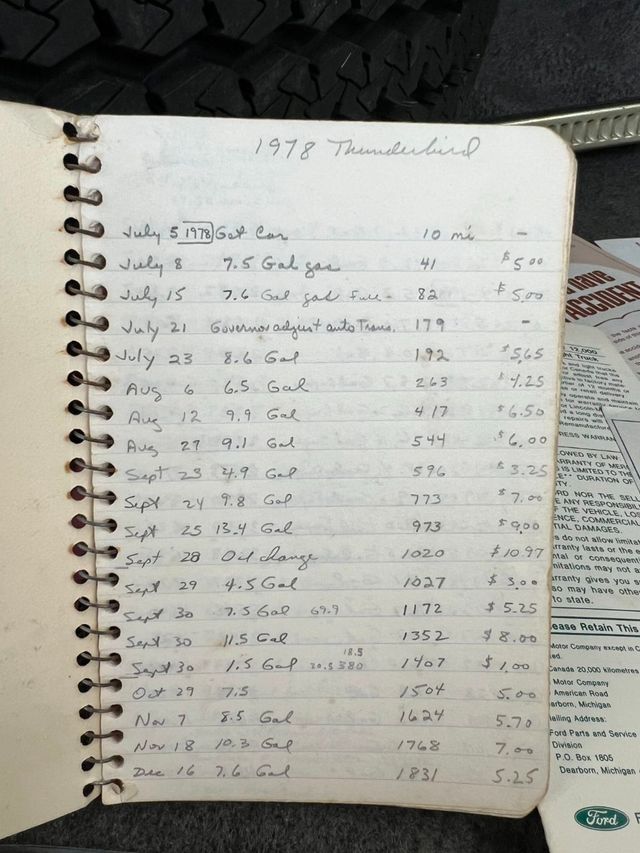 1978 Thunderbird
July 5 1978 Get Car 10 mi -
July 8 7.5 Gal gas 41 $5.00
July 15 7.6 Gal gas full - 82 $5.00
July 21 Governor adjust auto Trans. 179 -
July 23 8.6 Gal 192 $5.65
Aug 6 6.5 Gal 263 $4.25
Aug 12 9.9 Gal 417 $6.50
Aug 27 9.1 Gal 544 $6.00
Sept 23 4.9 Gal 596 $3.25
Sept 24 9.8 Gal 773 $7.00
Sept 25 13.4 Gal 973 $9.00
Sept 28 Oil change 1020 $10.97
Sept 29 4.5 Gal 1027 $3.00
Sept 30 7.5 Gal 69.9 1172 $5.25
Sept 30 11.5 Gal 1352 $8.00
18.5
Sept 30 1.5 Gal 20.5 380 1407 $1.00
Oct 29 7.5 1504 5.00
Nov 7 8.5 Gal 1624 5.70
Nov 18 10.3 Gal 1768 7.00
Dec 16 7.6 Gal 1831 5.25
have
ACCIDENT
12,000
ht Truck
RESS WARRAN
OWED BY LAW
RRANTY OF MER
IS LIMITED TO THE
DURATION OF
TY.
RD NOR THE SELL
E ANY RESPONSIBIL
F THE VEHICLE, LOS
ENCE, COMMERCIAL
TIAL DAMAGES.
s do not allow limitat
rranty lasts or the e
ntal or consequent
mitations may not a
rranty gives you s
so may have othe
to state.
ease Retain This
Motor Company except in C
ed.
Canada 20,000 kilometres
Motor Company
American Road
arborn, Michigan
ailing Address:
Ford Parts and Service
Division
P.O. Box 1805
Dearborn, Michigan
Ford F